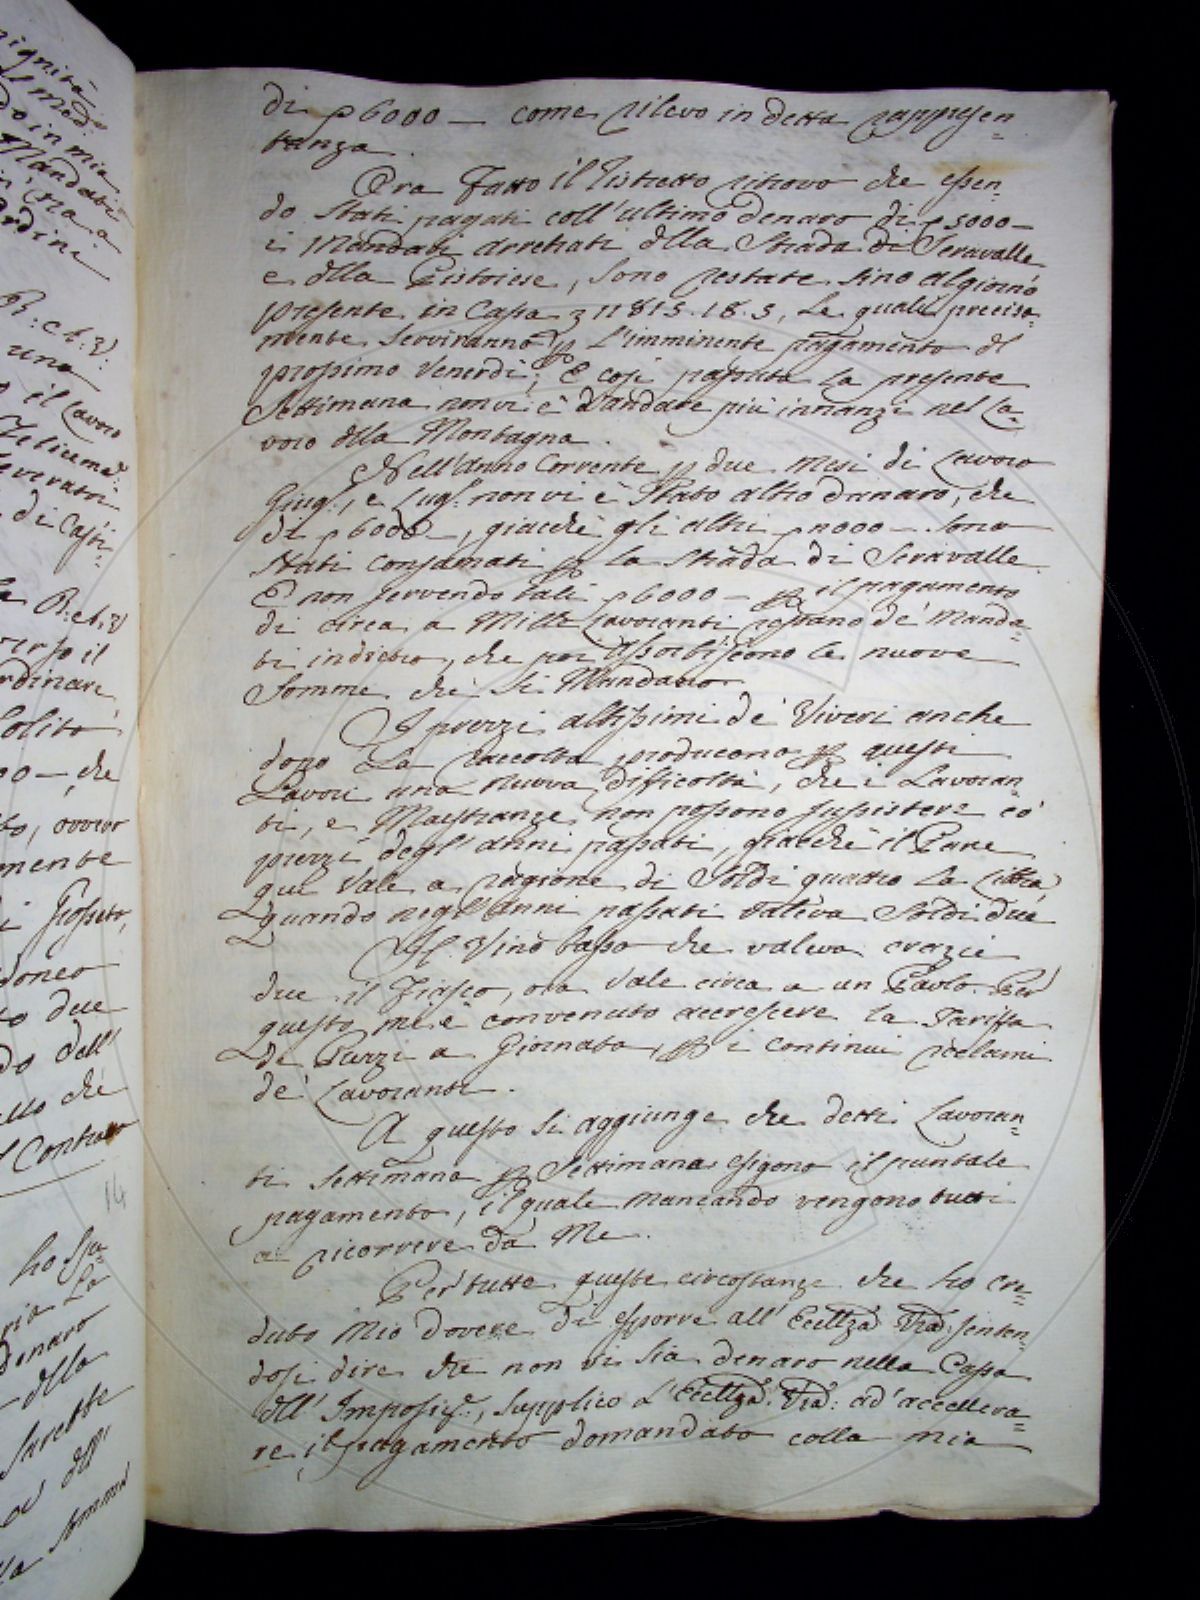 di p 6000 — come rilevo in detta rappresen=
tanza.
Ora Fatto il Ristretto ritrovo che essen=
do stati pagati coll'ultimo denaro di p 5000 —
i Mandati arretrati dlla Strada di Seravalle
e dlla Pistoiese, sono restate sino al giorno
presente in Cassa 11815.18.5, Le quali precisa=
mente serviranno p L'imminente pagamento dl
prossimo Venerdi, E cosi passata la presente
Settimana non vi è d'andare più innanzi nel La=
voro dlla Montagna.
Nell'Anno Corrente p due Mesi di Lavoro
Giug.o, e Lug.o non vi è stato altro danaro, che
di p 6000 —, giacchè gli altri p 11000 — sono
stati consumati p la Strada di Seravalle
E non servendo tali p 6000 — p il pagamento
di circa a Mille Lavoranti restano de' Manda=
ti indietro, che poi assorbiscono le nuove
Somme che si Mandano
I prezzi altissimi de' Viveri anche
dopo La raccolta producono p questi
Lavori una nuova difficoltà, che i Lavoran=
ti, e Maestranze non possono sussistere co'
prezzi degl'anni passati, giacchè il Pane
qui Vale a ragione di Soldi quattro la Libbra
quando negl'anni passati valeva Soldi due
Il Vino basso che valeva crazie
due il Fiasco, ora Vale circa a un Paolo. Per
questo mi è convenuto accrescere la Tariffa
de Prezzi a Giornata, p i continui reclami
de' Lavoranti.
A questo si aggiunge che detti Lavoran=
ti settimana p Settimana esigono il puntale
pagamento, il quale mancando vengono tutti
a ricorrere da Me.
Per tutte queste circostanze che ho cre=
duto Mio dovere di esporre all' Ecellza Vra: senten=
dosi dire che non vi sia denaro nella Cassa
dll' Imposiz:, supplico L'Ecellza Vra: ad' accellera=
re il pagamento domandato colla mia
R: c A: V:
una
il Lavoro
di Casti=
la R: c A: V
ordinare
solito
00 — che
to, ovvero
mente
due
do dell'
che
Contrario
14
ho
La
denaro
— dlla
sarebbe
dll'
Somma